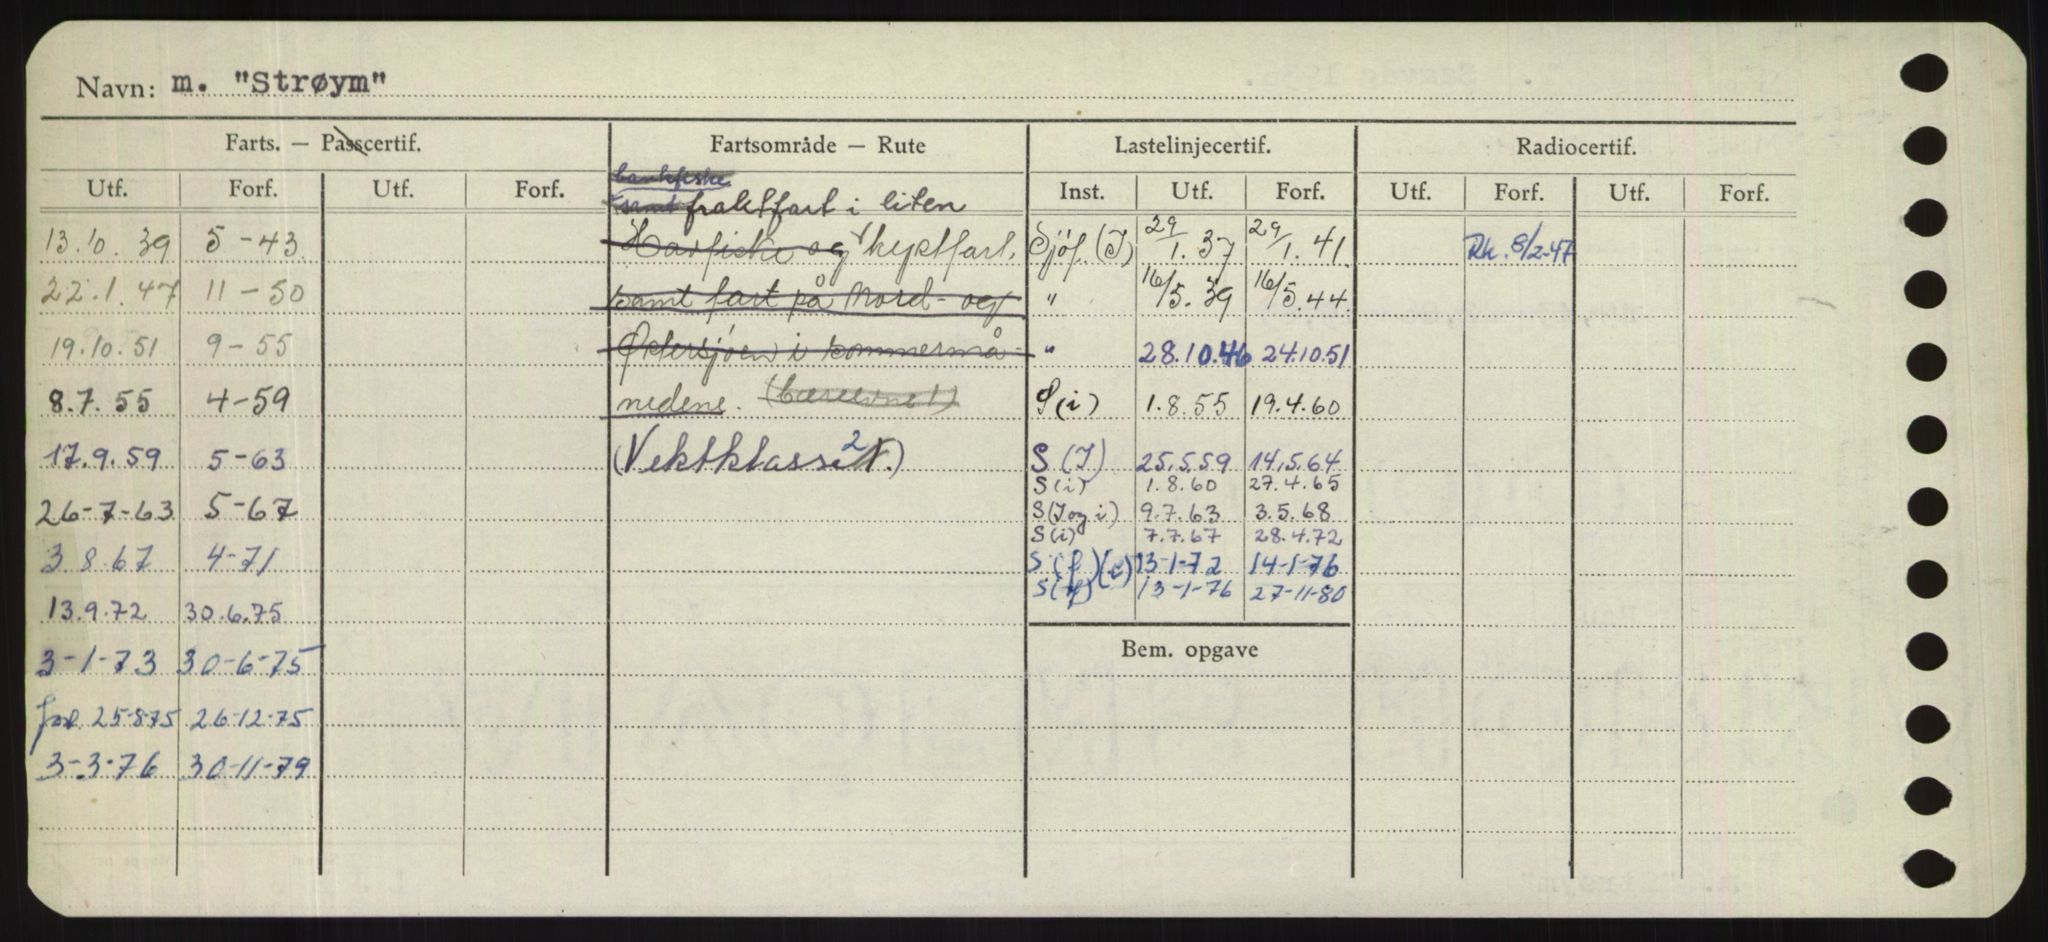 Navn: m. "Strøym"
Farts. — Passcertif. Fartsområde — Rute Lastelinjecertif. Radiocertif.
Utf. Forf. Utf. Forf. bankfiske Inst. Utf. Forf. Utf. Forf. Utf. Forf.
samt fraktfart i liten
13.10.39 5-43 Havfiske og kystfart. Sjöf. (I) 29/1.37 29/1.41 Rk. 8/2-47
22.1.47 11-50 samt fart på Nord- og " 16/5.39 16/5.44
19.10.51 9-55 Østersjøen i sommermå- " 28.10.46 24.10.51
8.7.55 4-59 nedene. (bareevne 1) S(i) 1.8.55 19.4.60
17.9.59 5-63 (Vektklasse 2.) S(I) 25.5.59 14.5.64
S(i) 1.8.60 27.4.65
26-7-63 5-67 S(I og i) 9.7.63 3.5.68
S(i) 7.7.67 28.4.72
3.8.67 4-71 S(f)(i) 13-1-72 14-1-76
S(f) 13-1-76 27-11-80
13.9.72 30.6.75
Bem. opgave
3-1-73 30-6-75
25-8-75 26-12-75
3-3-76 30-11-79